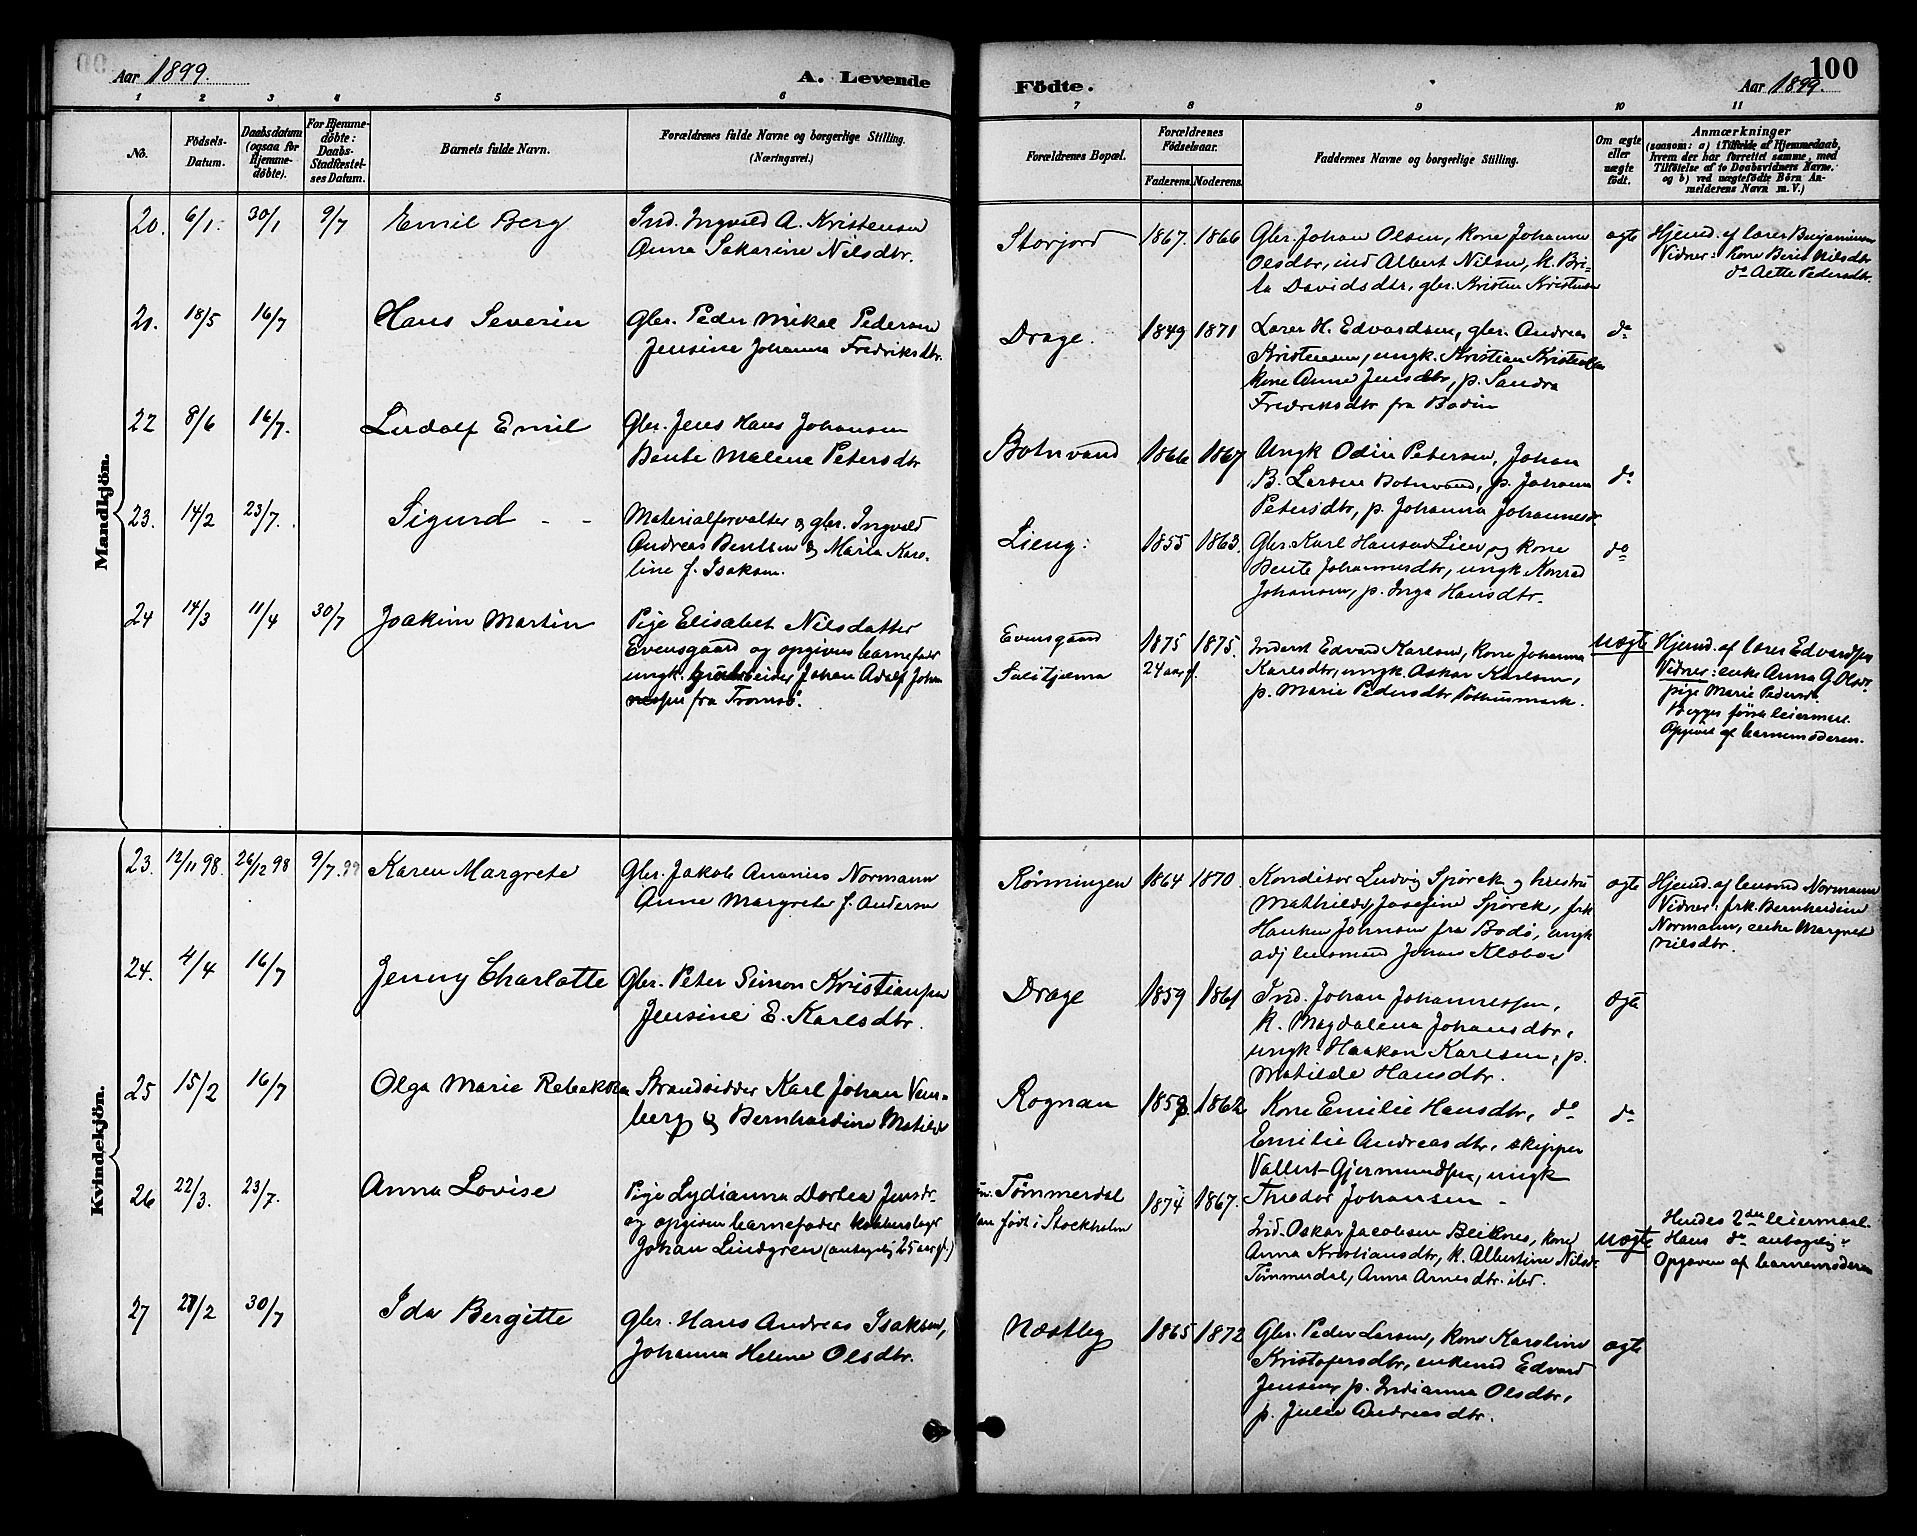 Aar 1899.
A. Levende
Fødte.
100
Aar 1899.
1 2 3 4 5 6 7 8 9 10 11
No.
Fødsels-
Datum.
Daabsdatum
(ogsaa for
Hjemme-
døbte).
For Hjemme-
døbte:
Daabs-
Stadfæstel-
ses Datum.
Barnets fulde Navn.
Forældrenes fulde Navne og borgerlige Stilling.
(Næringsvei.)
Forældrenes Bopæl.
Forældrenes
Fødselsaar.
Faderens. Moderens.
Faddernes Navne og borgerlige Stilling.
Om ægte
eller
uægte
født.
Anmærkninger
(saasom: a) i Tilfælde af Hjemmedaab,
hvem der har forrettet samme, med
Tilføielse af to Daabsvidners Navne.
og b) ved uægtefødte Børn An-
melderens Navn m. V.)
Mandkjön.
20. 6/1. 30/1 9/7 Emil Berg
Ind. Ingvald A. Kristensen
Anna Sakarine Nilsdtr.
Storjord 1867. 1866
Gbr. Johan Olsen, kone Johanna
Olsdtr, ind Albert Nilsen, k. Bri-
ta Davidsdtr, gbr. Kristen Kristensen
ægte
Hjemd. af lærer Benjaminsen
Vidner: Kone Berit Nilsdtr
do Aette Pedersdtr.
21. 18/5 16/7 Hans Severin
Gbr. Peder Mikal Pedersen
Jensine Johanna Fredriksdtr.
Drage. 1849 1871
Lærer H. Edvardsen, gbr. Andreas
Kristensen, ungk. Kristian Kristensen
kone Anne Jensdtr, p. Sandra
Fredriksdtr fra Bodin
do
22 8/6 16/7. Ludolf Emil
Gbr. Jens Hans Johansen
Bente Malene Petersdtr
Botnvand 1866 1867
Ungk Odin Petersen, Johan
B. Larsen Botnvand, p. Johanna
Petersdtr, p. Johanna Johannesdr
do
23. 14/2 23/7. Sigurd - -
Materialforvalter & gbr. Ingvald
Andreas Bentsen & Maria Karo-
line f. Isaksen.
Lieng: 1855 1863.
Gbr. Karl Hansen Lien og kone
Bente Johannesdtr, ungk Konrad
Johansen, p. Inga Hansdtr.
do
24 14/3 11/4 30/7 Joakim Martin
Pige Elisabet Nilsdatter
Evensgaard og opgiven barnefader
ungk. grubearbeider Johan Adolf Johan
nessen fra Tromsø.
Evensgaard
1875 1875.
24 aar g.
Inderst Edvard Karlsen, kone Johanna
Karlsdtr, ungk. Askar Karlsen,
p. Marie Pedersdtr Pothusmark.
uægte
Hjemd. af lærer Edvardsen
Vidner: enke Anna G. Olsdr
pige Marie Pedersd.
Begges første leiermaal.
Opgivet af barnemoderen.
Kvindekjön.
23. 12/11 98. 26/12 98 9/7. 99 Karen Margrete
Gbr. Jakob Ananias Normann
Anne Margrete f. Andersen
Rønningen 1864 1870.
Konditor Ludvig Spørck og hustru
Mathilde Josefine Spørck, frk
Hanken Johnsen fra Bodø, ungk
adj lensmand Johan Klæboe
ægte
Hjemd. af lensmd Normann
Vidner: frk. Bernhardine
Normann, enke Margret
Nilsdtr.
24. 4/4 16/7 Jenny Charlotte
Gbr. Peter Simon Kristiansen
Jensine E. Karlsdtr.
Drage 1859 1861
Ind. Johan Johannessen,
k. Magdalena Johansdtr,
ungk. Haakon Karlsen, p.
Matilde Hansdtr.
ægte
25 15/2 16/7 Olga Marie Rebekka
Strandsidder Karl Johan Venn-
berg & Bernhardine Matilde
Rognan 1859 1862
Kone Emilie Hansdtr, do
Emilie Andreasdtr, skipper
Vallert Gjermundsen, ungk
Thedor Johansen -
do
26 22/3. 23/7. Anna Lovise
Pige Lydianna Dortea Jensdr-
og opgiven barnefader kobberslager
Johan Lindgren (antagelig 25 aar gl.)
Tømmerdal
født i Stockholm
1874 1867.
Ind. Oskar Jacobsen Beiknes, kone
Anna Kristiansdtr, k. Albertine Nilsdr
Tømmerdal, Anna Arnesdtr. ibd.
uægte
Hendes 2det leiermaal.
Hans do antagelig.
Opgaven af barnemoderen
27 27/2 30/7 Ida Bergitte
Gbr. Hans Andreas Isaksen,
Johanna Helene Olsdtr.
Næstby 1865 1872
Gbr. Peder Larsen, kone Karoline
Kristofersdtr, enkemd Edvard
Jensen, p. Indianna Olsdtr,
p. Julie Andreasdtr.
ægte